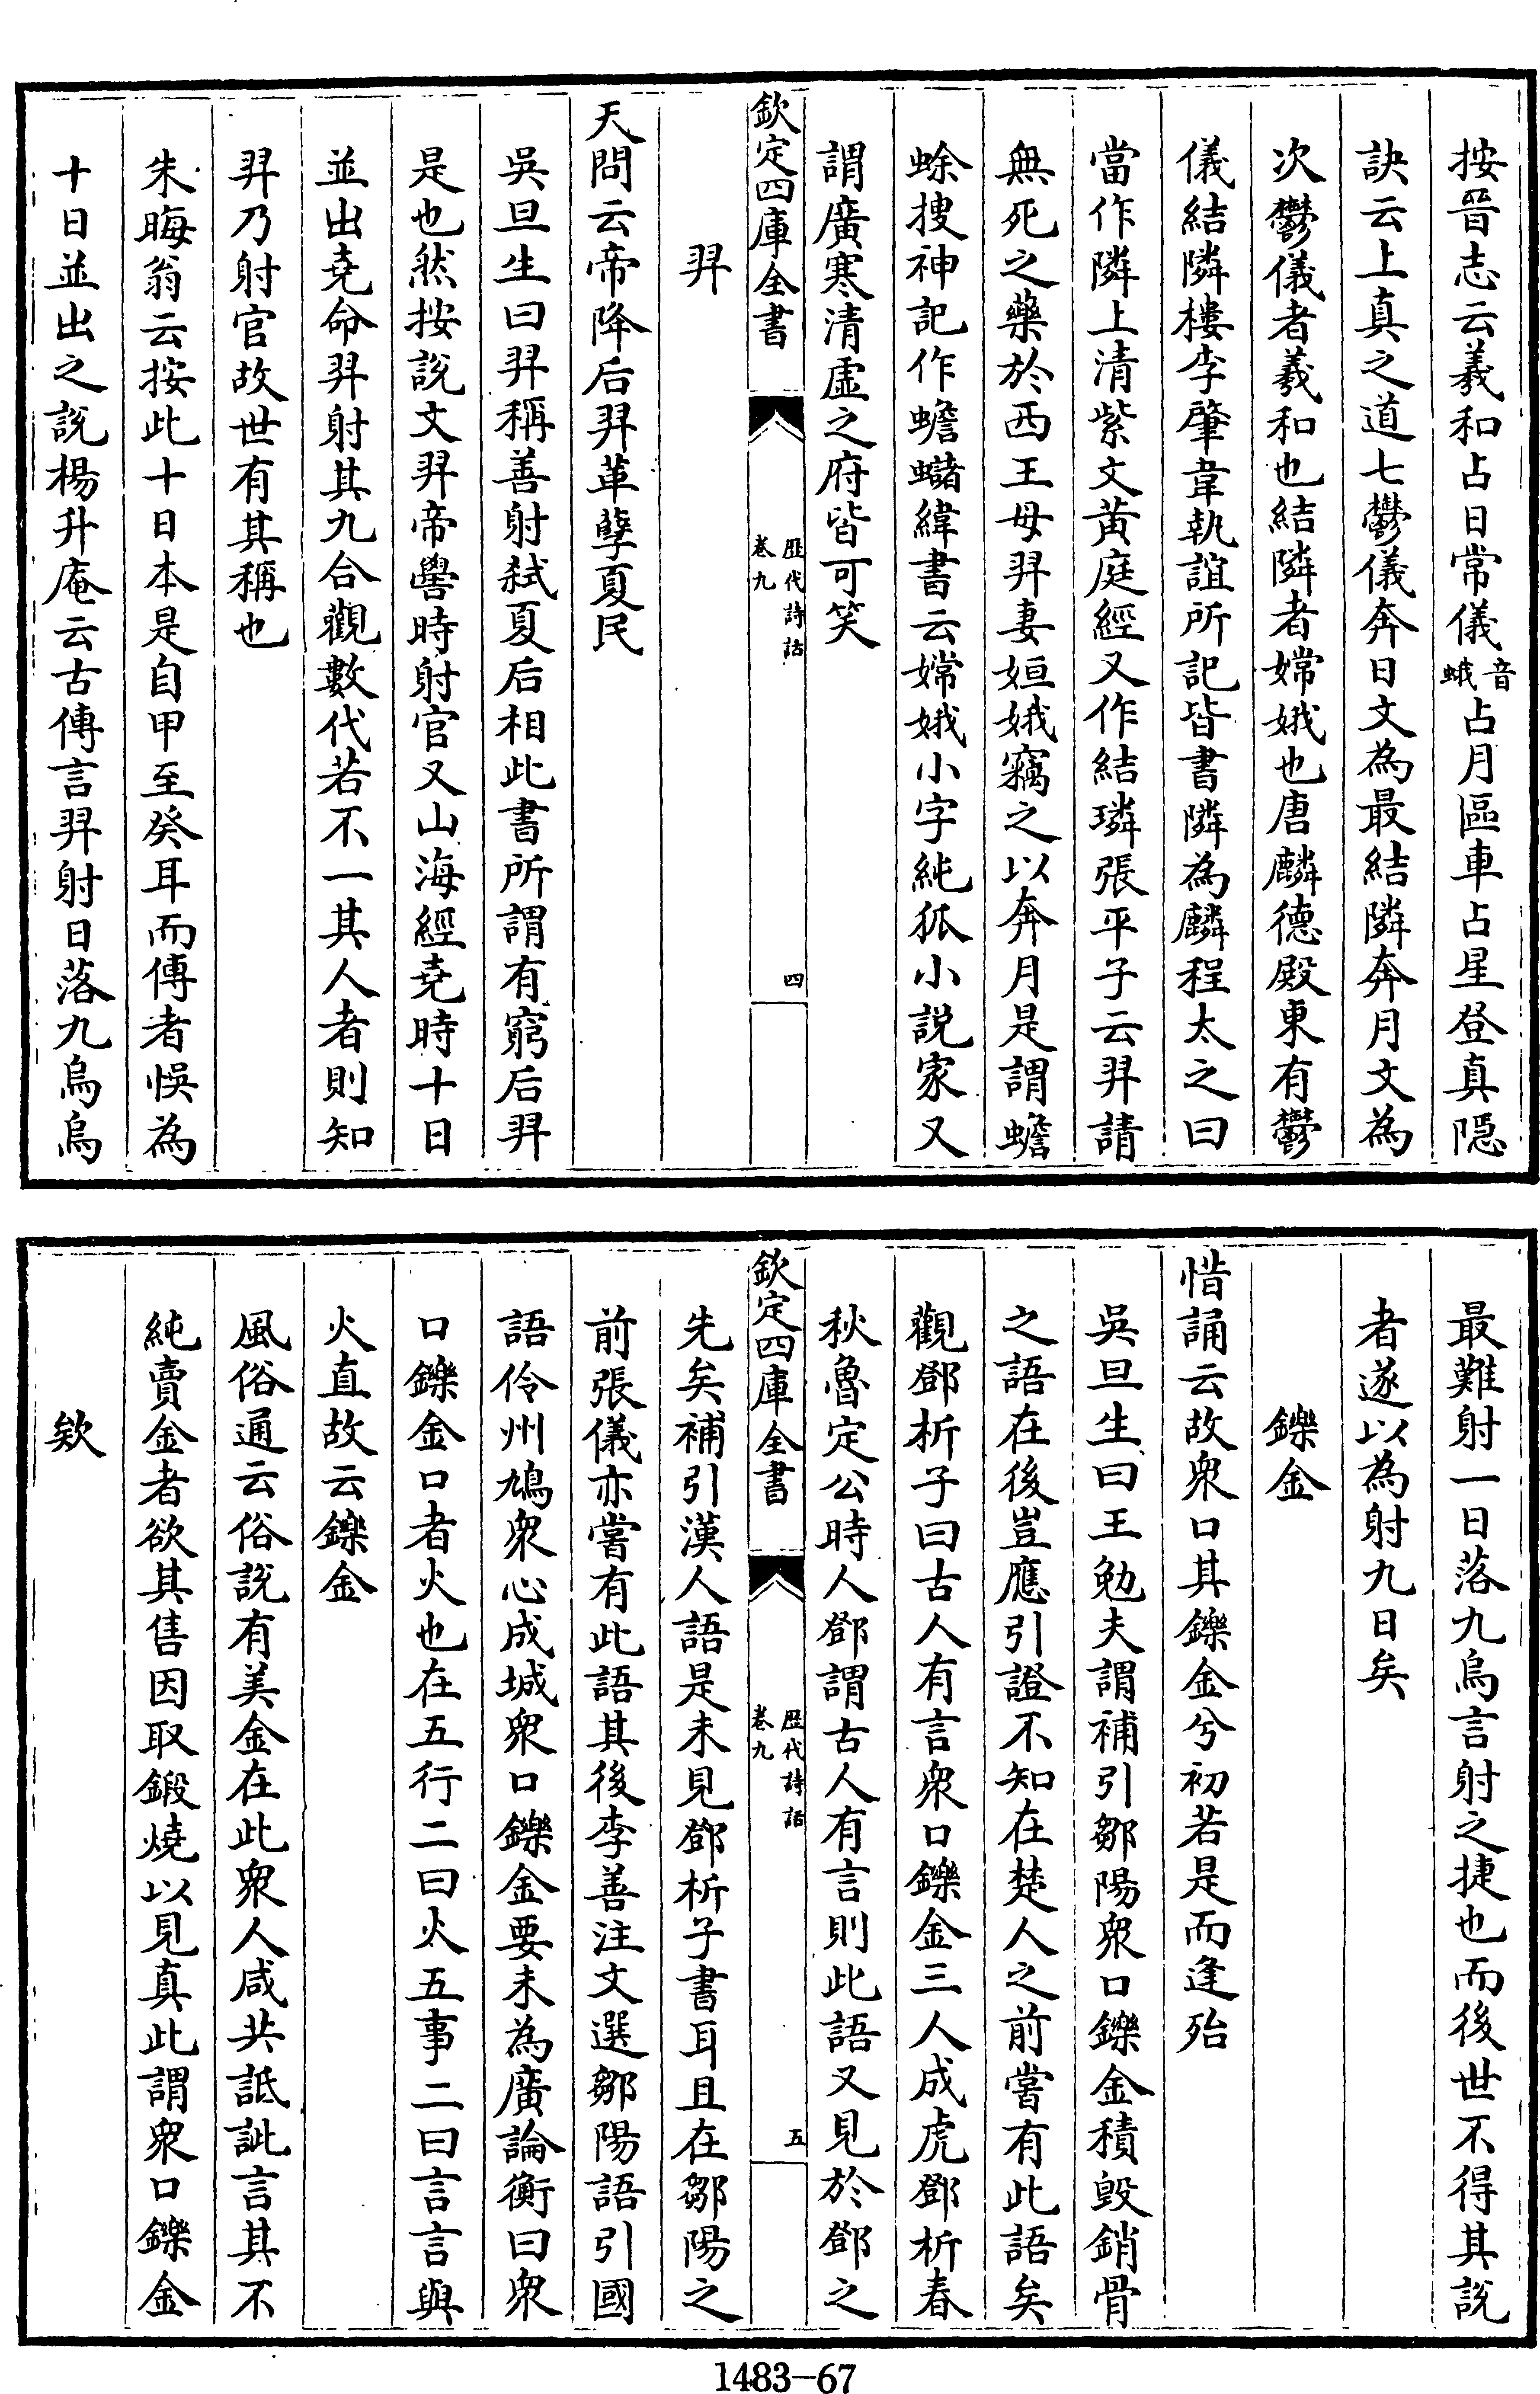 按晉志云羲和占日常儀音蛾占月區車占星登真隱
訣云上真之道七鬱儀奔日文為最結隣奔月文為
次鬱儀者羲和也結隣者嫦娥也唐麟德殿東有鬱
儀結隣樓李肇韋執誼所記皆書隣為麟程太之曰
當作隣上清紫文黃庭經又作結璘張平子云羿請
無死之藥於西王母羿妻姮娥竊之以奔月是謂蟾
蜍搜神記作蟾蠩緯書云嫦娥小字純狐小説家又
謂廣寒清虛之府皆可笑
欽定四庫全書
歴代詩話
卷九
四
羿
天問云帝降后羿革孽夏民
吳旦生曰羿稱善射弑夏后相此書所謂有窮后羿
是也然按説文羿帝嚳時射官又山海經堯時十日
並出堯命羿射其九合觀數代若不一其人者則知
羿乃射官故世有其稱也
朱晦翁云按此十日本是自甲至癸耳而傳者悞為
十日並出之説楊升庵云古傳言羿射日落九烏烏
最難射一日落九烏言射之捷也而後世不得其説
者遂以為射九日矣
鑠金
惜誦云故衆口其鑠金兮初若是而逢殆
吳旦生曰王勉夫謂補引鄒陽衆口鑠金積毀銷骨
之語在後豈應引證不知在楚人之前嘗有此語矣
觀鄧析子曰古人有言衆口鑠金三人成虎鄧析春
秋魯定公時人鄧謂古人有言則此語又見於鄧之
欽定四庫全書
歴代詩話
卷九
五
先矣補引漢人語是未見鄧析子書耳且在鄒陽之
前張儀亦嘗有此語其後李善注文選鄒陽語引國
語伶州鳩衆心成城衆口鑠金要未為廣論衡曰衆
口鑠金口者火也在五行二曰火五事二曰言言與
火直故云鑠金
風俗通云俗説有美金在此衆人咸共詆訿言其不
純賣金者欲其售因取鍛燒以見真此謂衆口鑠金
欵
1483-67